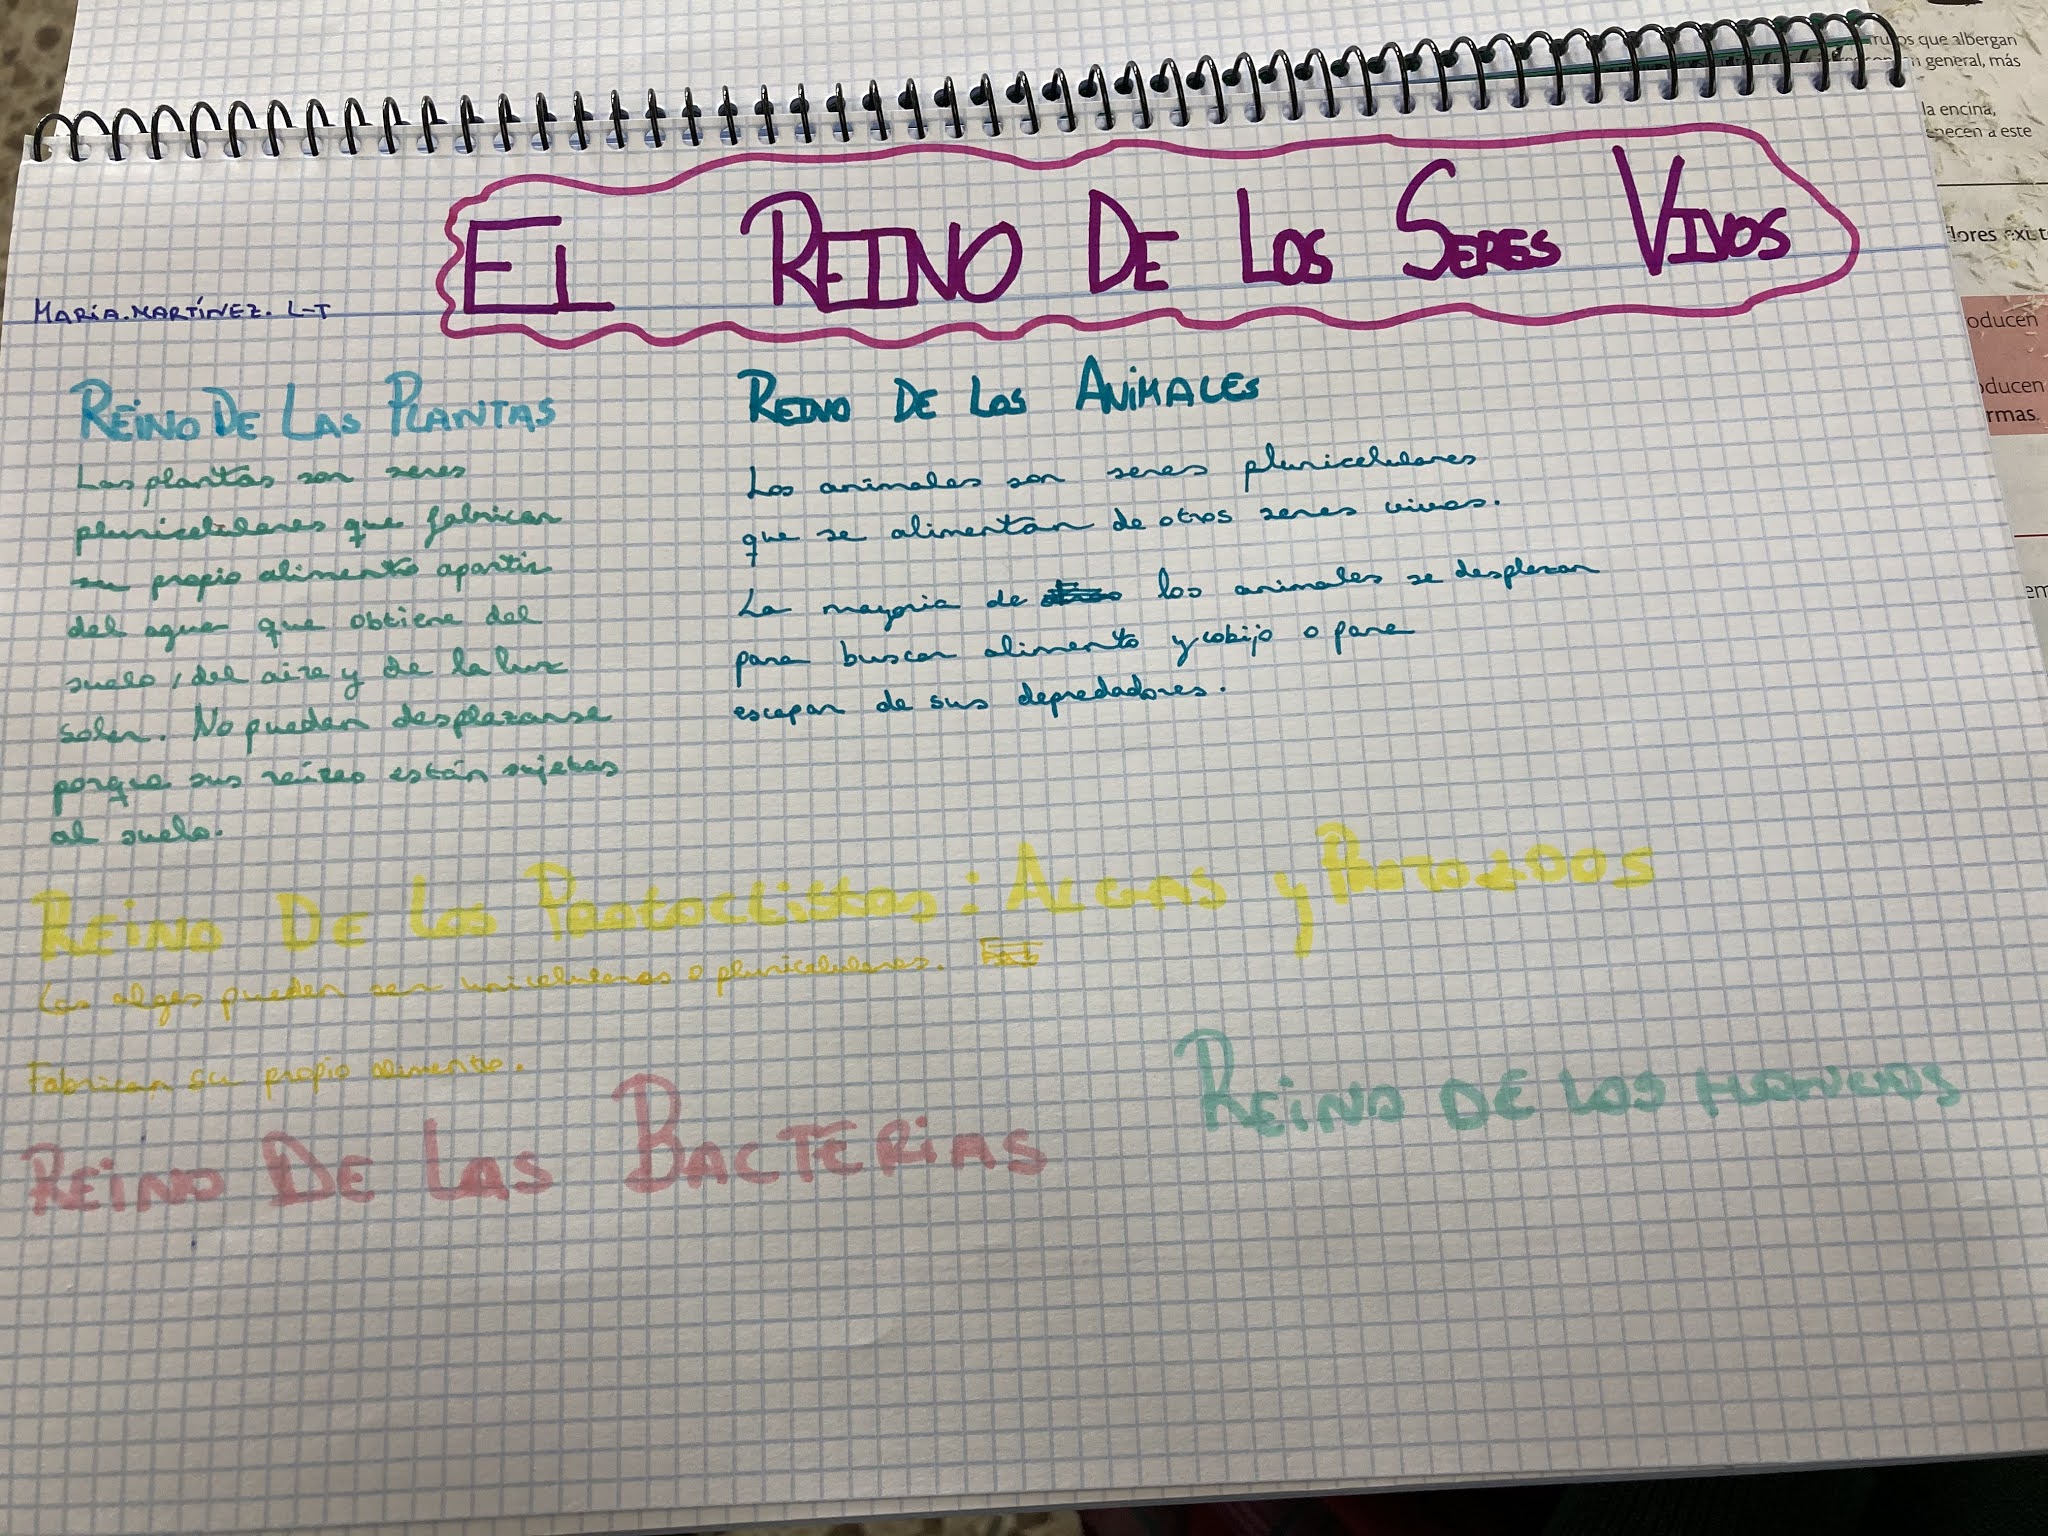 EL REINO DE LOS SERES VIVOS
MARÍA.MARTÍNEZ. L-T
REINO DE LAS PLANTAS
Las plantas son seres
pluricelulares que fabrican
su propio alimento apartir
del agua que obtiene del
suelo, del aire y de la luz
solar. No pueden desplazarse
porque sus raíces están sujetas
al suelo.
REINO DE LOS ANIMALES
Los animales son seres pluricelulares
que se alimentan de otros seres vivos.
La mayoria de los animales se desplazan
para buscar alimento y cobijo o para
escapar de sus depredadores.
REINO DE LOS Protoctistas: ALGAS y PROTOZOOS
Las algas pueden ser unicelulares o pluricelulares.
Fabrican su propio alimento.
REINO DE LAS BACTERIAS
REINO DE LOS HONGOS
que albergan
general, más
la encina,
necen a este
lores
oducen
oducen
rmas.